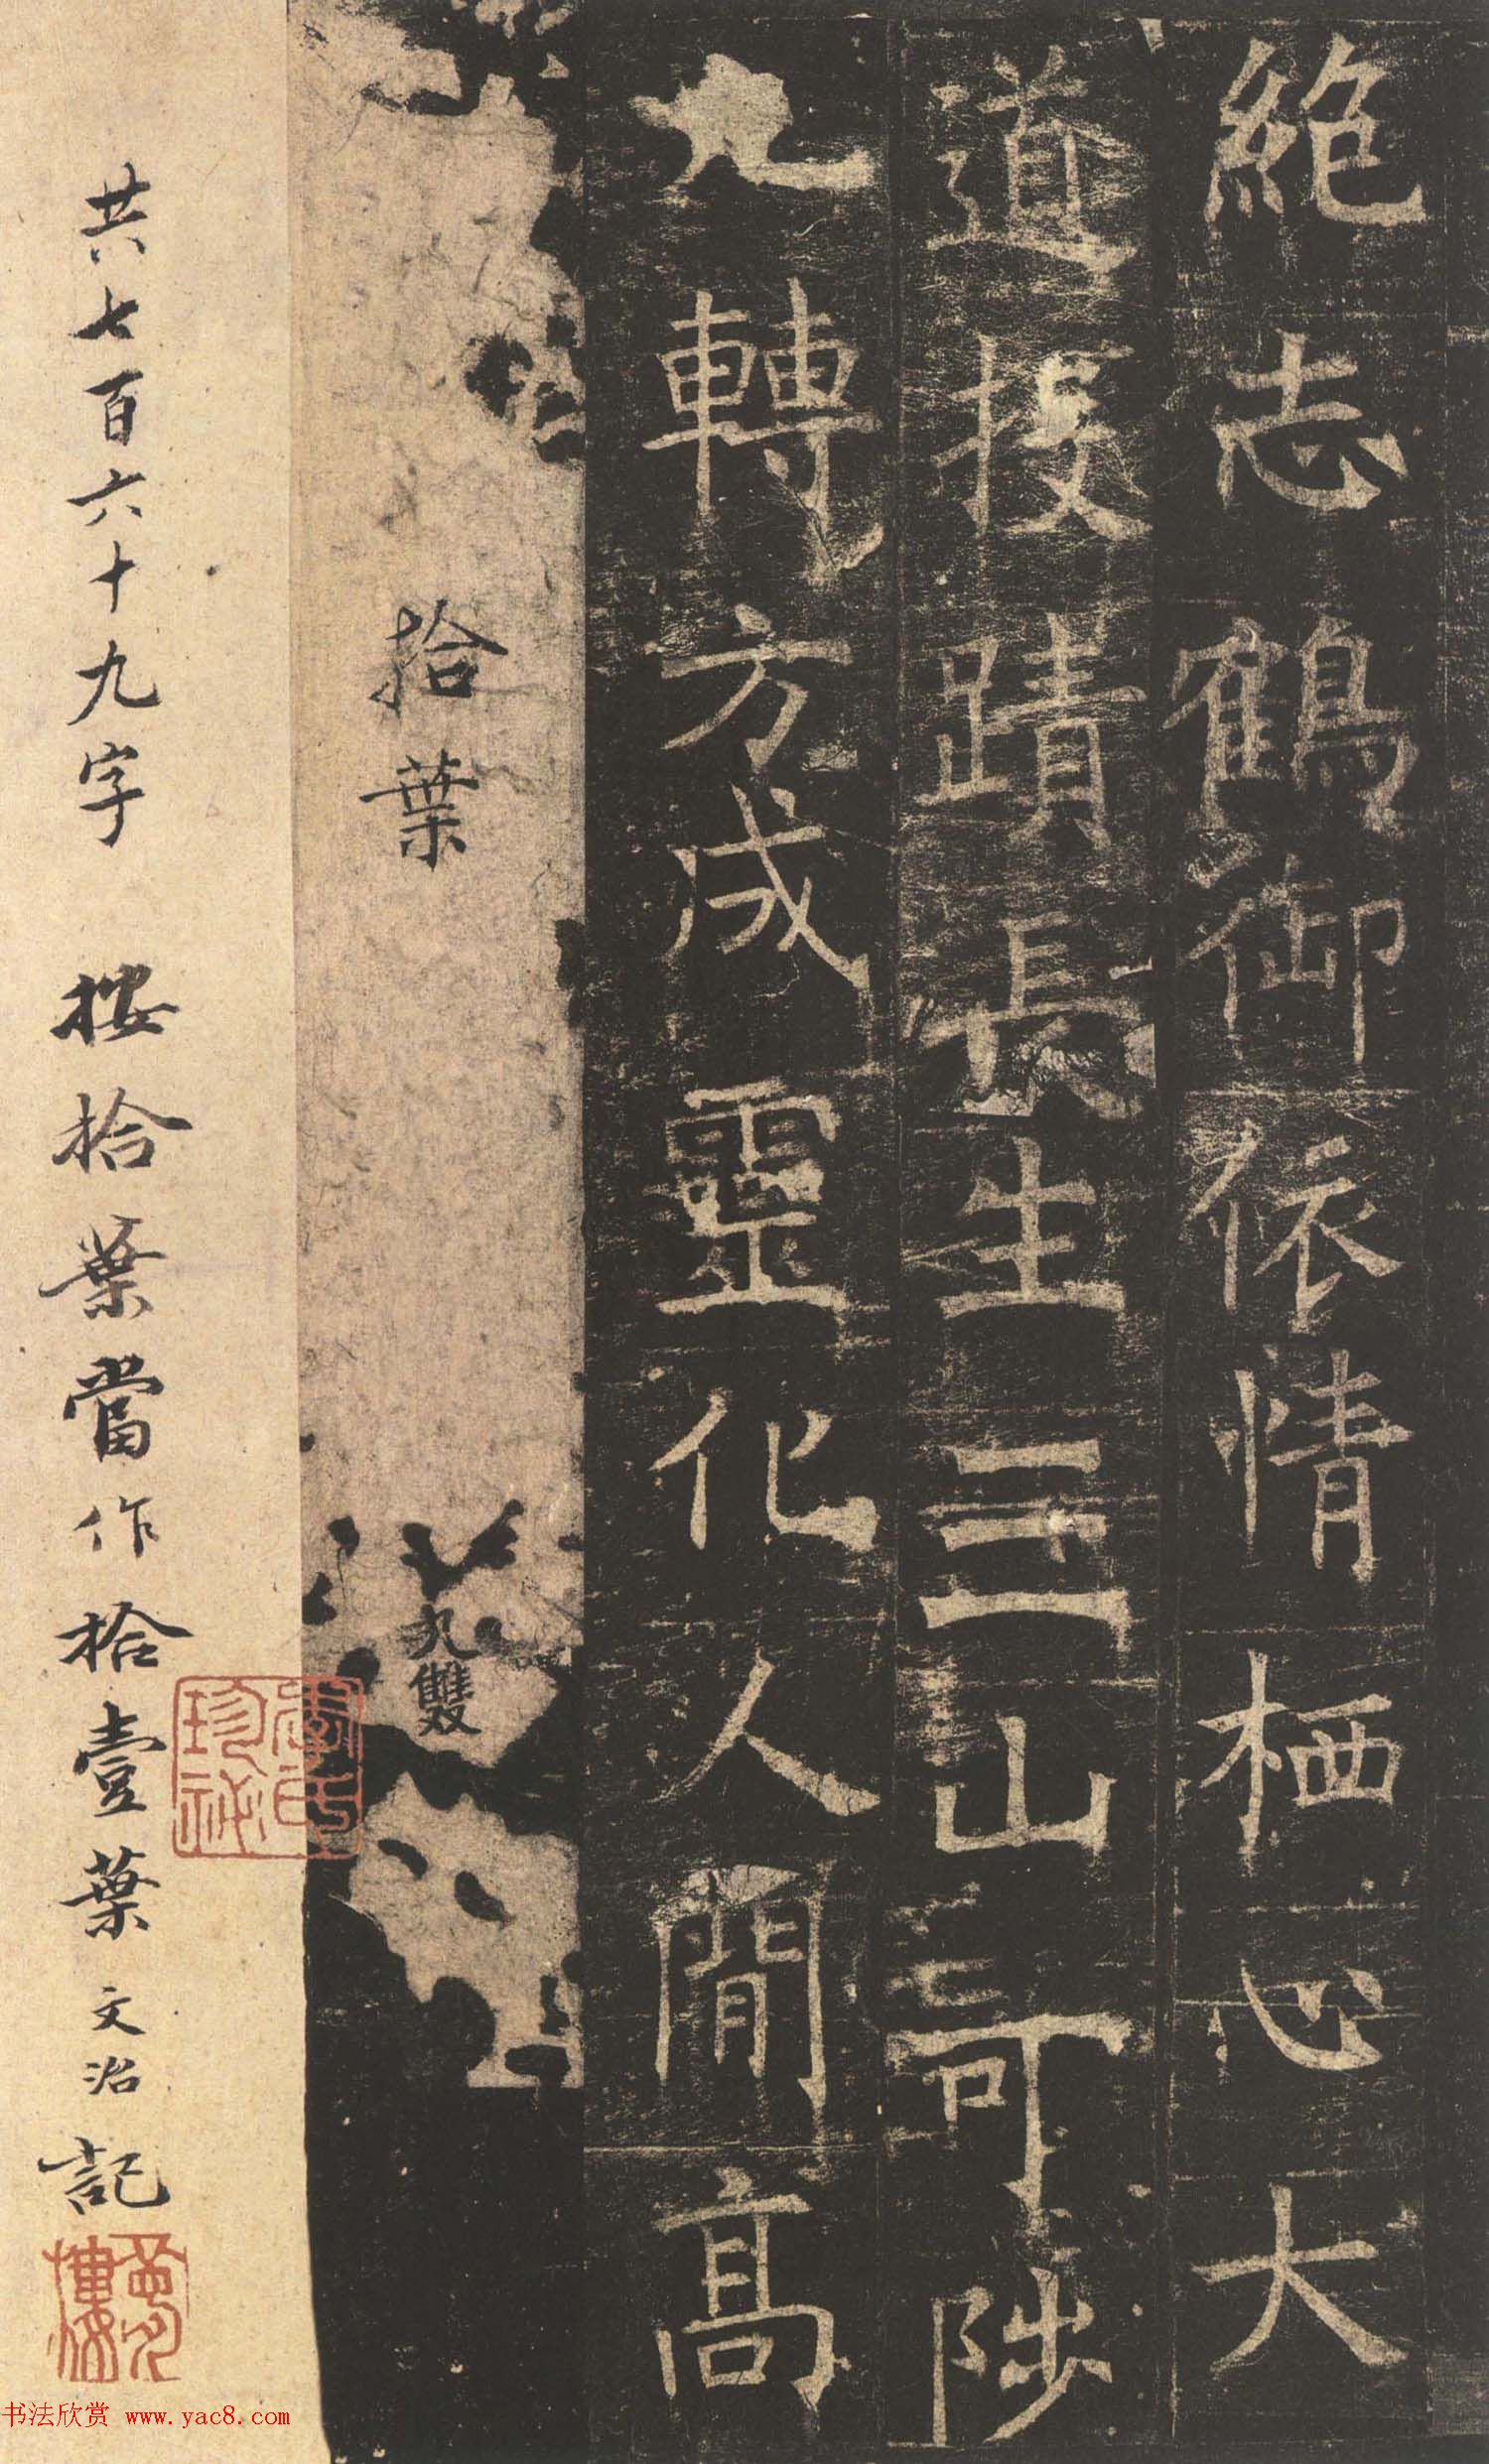 絶志鶴御依情栖心大
道投蹟長生三山可陟
九轉方成靈化人閒髙
拾葉
九雙
李氏珍祕
共七百六十九字 按拾葉當作拾壹葉 文治記
夢樓
书法欣赏 www.yac8.com